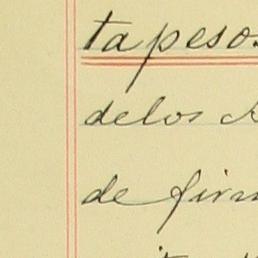 ta pesos
delos
de fir